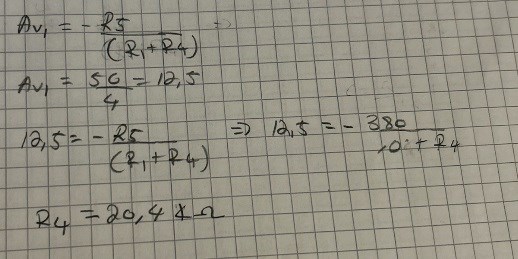 Av₁ = - R5 / (R₁ + R4)
Av₁ = 50 / 4 = 12,5
12,5 = - R5 / (R₁ + R4) ⇒ 12,5 = - 380 / 10 + R4
R4 = 20,4 kΩ